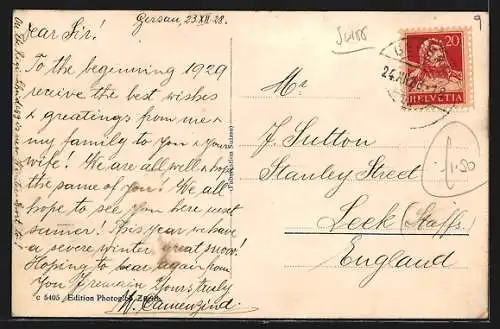 Gersau, 23 XII 28.
Dear Sir!
To the beginning 1929
receive the best wishes
& greatings from me &
my family to you & your
wife! We are all well & hope
the same of you! We all
hope to see you here next
summer! This year we have
a severe winter, great snow!
Hoping to hear again from
you I remain Yours truly
M. Camenzind.
c 5405 Edition Photoglob Zürich
(Fabrication Suisse)
Suiss
20
HELVETIA
24.XII.28
Mr
J. Sutton
Stanley Street
Leek (Staffs.
England
1.50